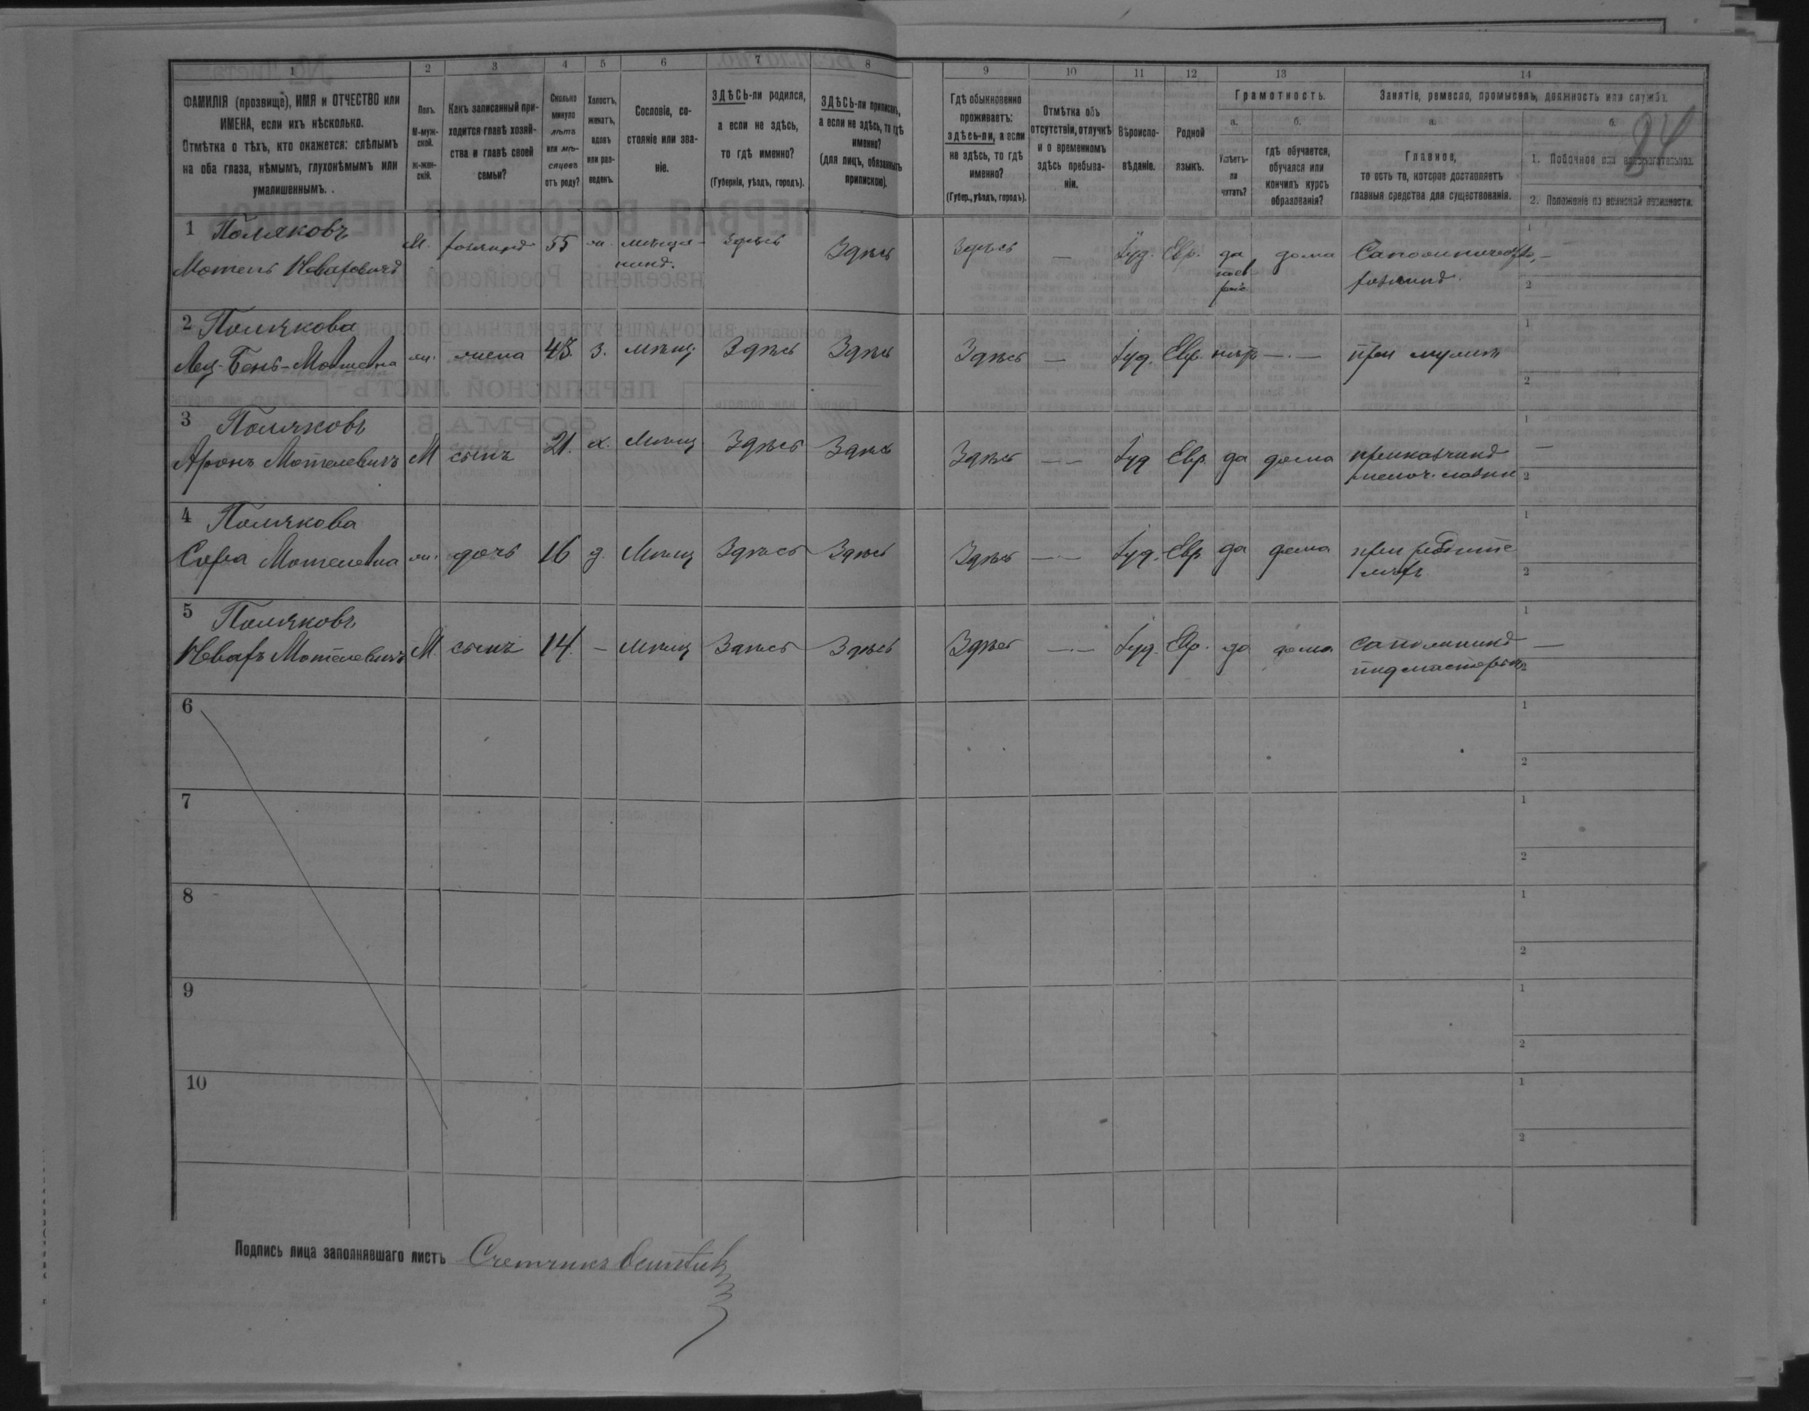 1 2 3 4 5 6 7 8 9 10 11 12 13 14
ФАМИЛІЯ (прозвище), ИМЯ и ОТЧЕСТВО или
ИМЕНА, если ихъ нѣсколько.
Отмѣтка о тѣхъ, кто окажется: слѣпымъ
на оба глаза, нѣмымъ, глухонѣмымъ или
умалишеннымъ.
Полъ.
М-муж-
ской.
ж-жен-
скій.
Какъ записанный при-
ходится главѣ хозяй-
ства и главѣ своей
семьи?
Сколько
минуло
лѣтъ
или мѣ-
сяцевъ
отъ роду?
Холостъ,
женатъ,
вдовъ
или раз-
веденъ.
Сословіе, со-
стояніе или зва-
ніе.
ЗДѢСЬ-ли родился,
а если не здѣсь,
то гдѣ именно?
(Губернія, уѣздъ, городъ).
ЗДѢСЬ-ли приписанъ,
а если не здѣсь, то гдѣ
именно?
(для лицъ, обязанныхъ
припиской).
Гдѣ обыкновенно
проживаетъ:
здѣсь-ли, а если
не здѣсь, то гдѣ
именно?
(Губер., уѣздъ, городъ).
Отмѣтка объ
отсутствіи, отлучкѣ
и о временномъ
здѣсь пребыва-
ніи.
Вѣроиспо-
вѣданіе.
Родной
языкъ.
Грамотность.
а.
Умѣетъ-
ли
читать?
б.
гдѣ обучается,
обучался или
кончилъ курсъ
образованія?
Занятіе, ремесло, промыселъ, должность или служба.
а.
Главное,
то есть то, которое доставляетъ
главныя средства для существованія.
б.
1. Побочное или вспомогательное.
2. Положеніе по воинской повинности.
84
1 Поляковъ
Мотель М. хозяинъ 55 ж. мѣща- нинъ. Здѣсь Здѣсь Здѣсь — Іуд. Евр. да дома
хозяинъ.
2 Полякова
ж. жена 43 з. мѣщ Здѣсь Здѣсь Здѣсь — Іуд. Евр. нѣтъ — при мужѣ
3 Поляковъ
Аронъ Мотелевичъ М сынъ 21. х. мѣщ Здѣсь Здѣсь Здѣсь — Іуд Евр. да дома приказчикъ
4 Полякова
Сора Мотелевна ж. дочь 16 д. Мѣщ Здѣсь Здѣсь Здѣсь — Іуд. Евр да дома при родите-
ляхъ
5 Поляковъ
Мотелевичъ М. сынъ 14. — Мѣщ Здѣсь Здѣсь Здѣсь — Іуд. Евр. да дома сапожникъ —
подмастерье
6
7
8
9
10
Подпись лица заполнявшаго листъ Счетчикъ